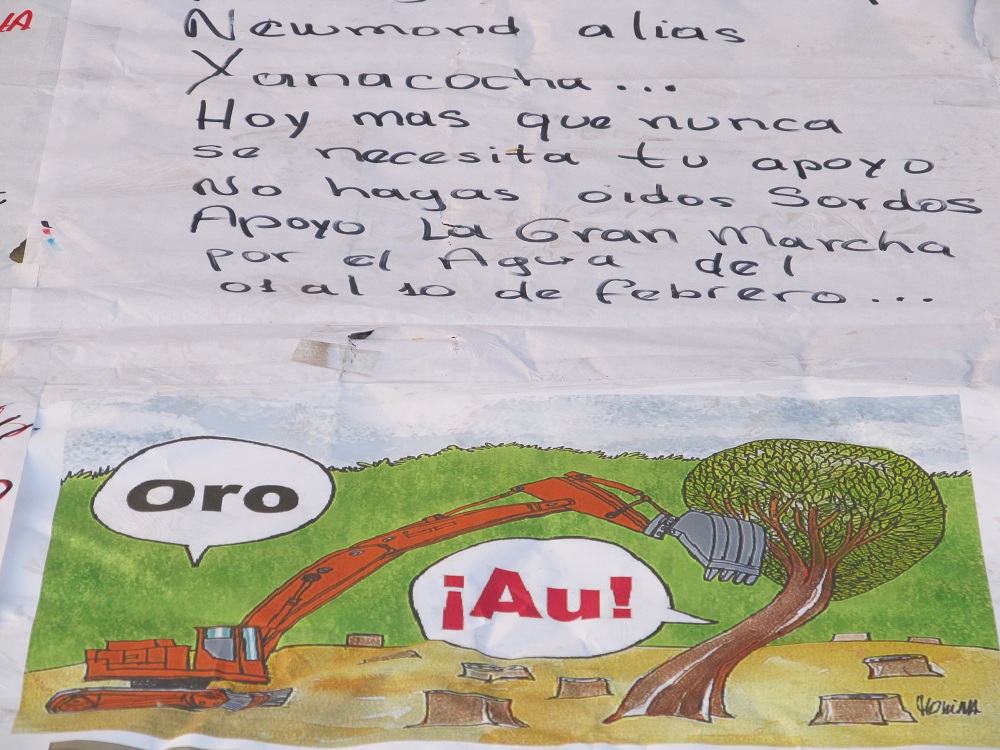 Newmond alias
Yanacocha...
Hoy mas que nunca
se necesita tu apoyo
No hagas oidos Sordos
Apoyo La Gran Marcha
por el Agua del
01 al 10 de febrero...
Oro
¡Au!